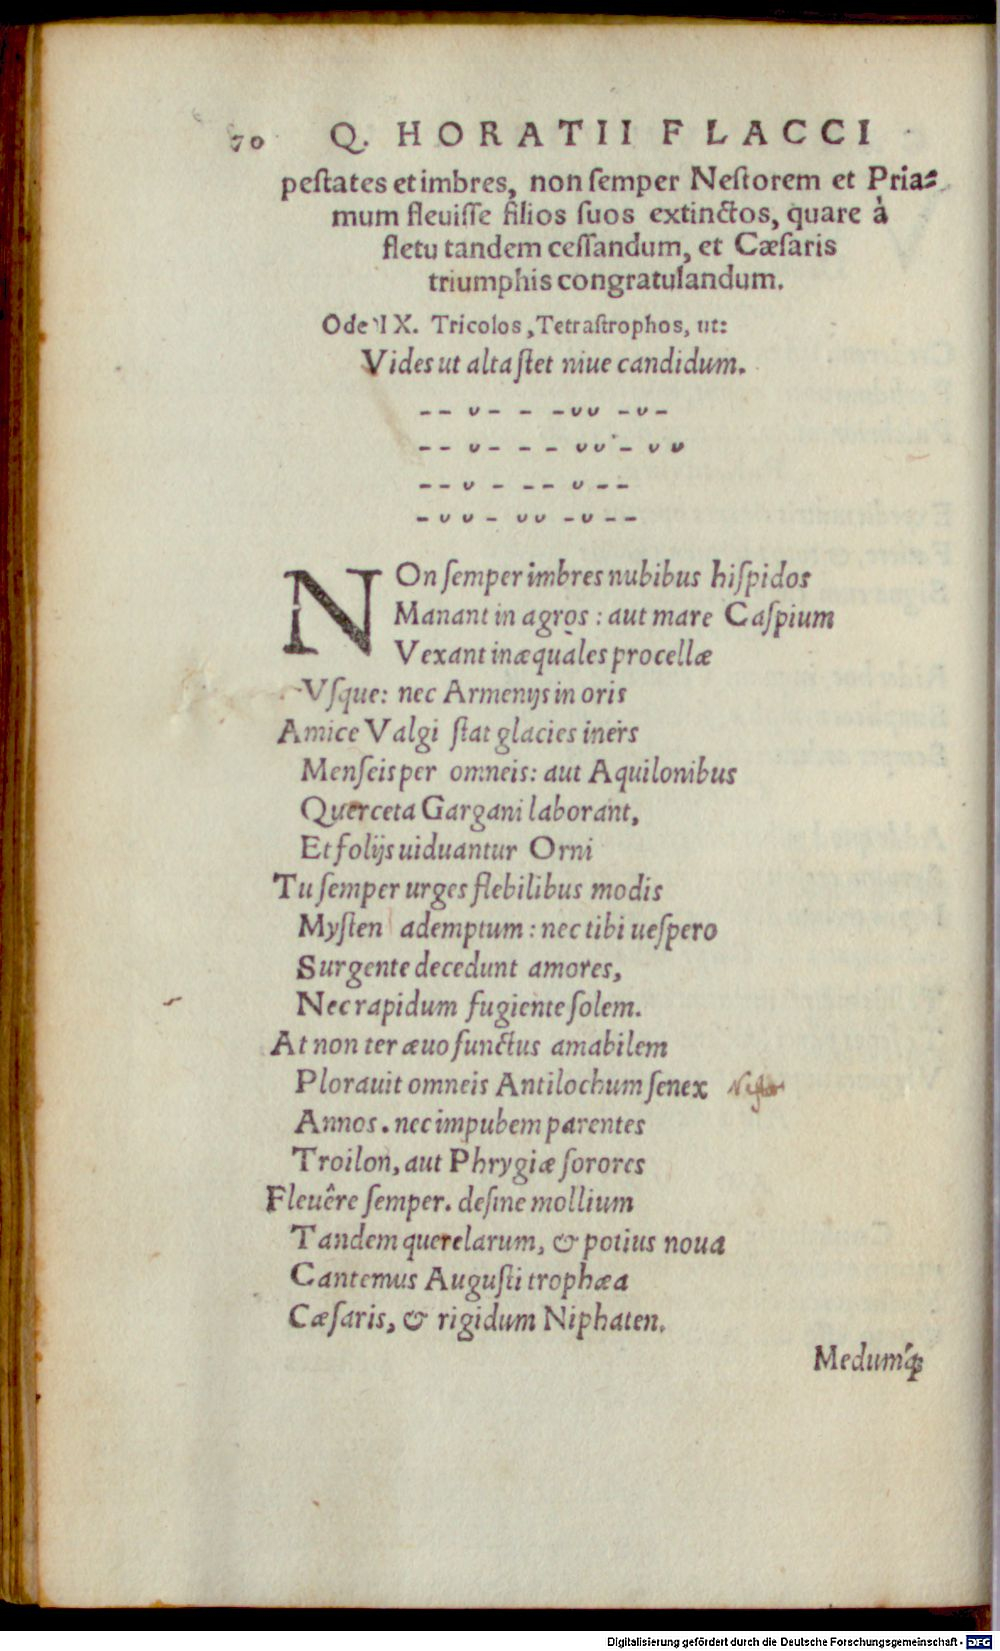 70 Q. HORATII FLACCI
peſtates et imbres, non ſemper Neſtorem et Pria⸗
mum fleuiſſe filios ſuos extinctos, quare à
fletu tandem ceſſandum, et Cæſaris
triumphis congratulandum.
Ode IX. Tricolos, Tetraſtrophos, ut:
Vides ut alta ſtet niue candidum.
– – ᴗ – – – ᴗ ᴗ – ᴗ –
– – ᴗ – – – ᴗ ᴗ – ᴗ ᴗ
– – ᴗ – – – ᴗ – –
– ᴗ ᴗ – ᴗ ᴗ – ᴗ – –
NOn ſemper imbres nubibus hiſpidos
Manant in agros: aut mare Caſpium
Vexant inæquales procellæ
Vſque: nec Armenijs in oris
Amice Valgi ſtat glacies iners
Menſeis per omneis: aut Aquilonibus
Querceta Gargani laborant,
Et folijs uiduantur Orni
Tu ſemper urges flebilibus modis
Myſten ademptum: nec tibi ueſpero
Surgente decedunt amores,
Nec rapidum fugiente ſolem.
At non ter æuo functus amabilem
Plorauit omneis Antilochum ſenex Neſtor
Annos. nec impubem parentes
Troilon, aut Phrygiæ ſorores
Fleuêre ſemper. deſine mollium
Tandem querelarum, & potius noua
Cantemus Auguſti trophæa
Cæſaris, & rigidum Niphaten.
Medumq́ꝫ
Digitalisierung gefördert durch die Deutsche Forschungsgemeinschaft - DFG